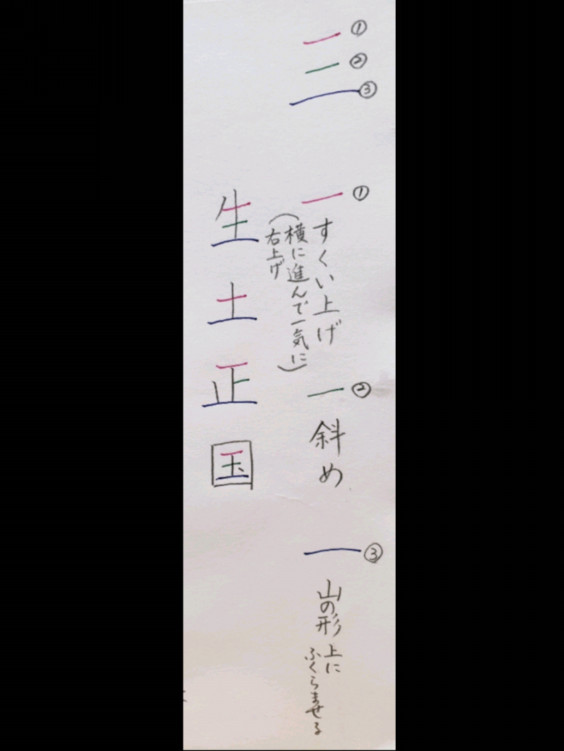 三
①
②
③
一 ①
すくい上げ
(横に進んで一気に
右上げ)
一 ②
斜め
一 ③
山の形
上に
ふくらませる
生
土
正
国